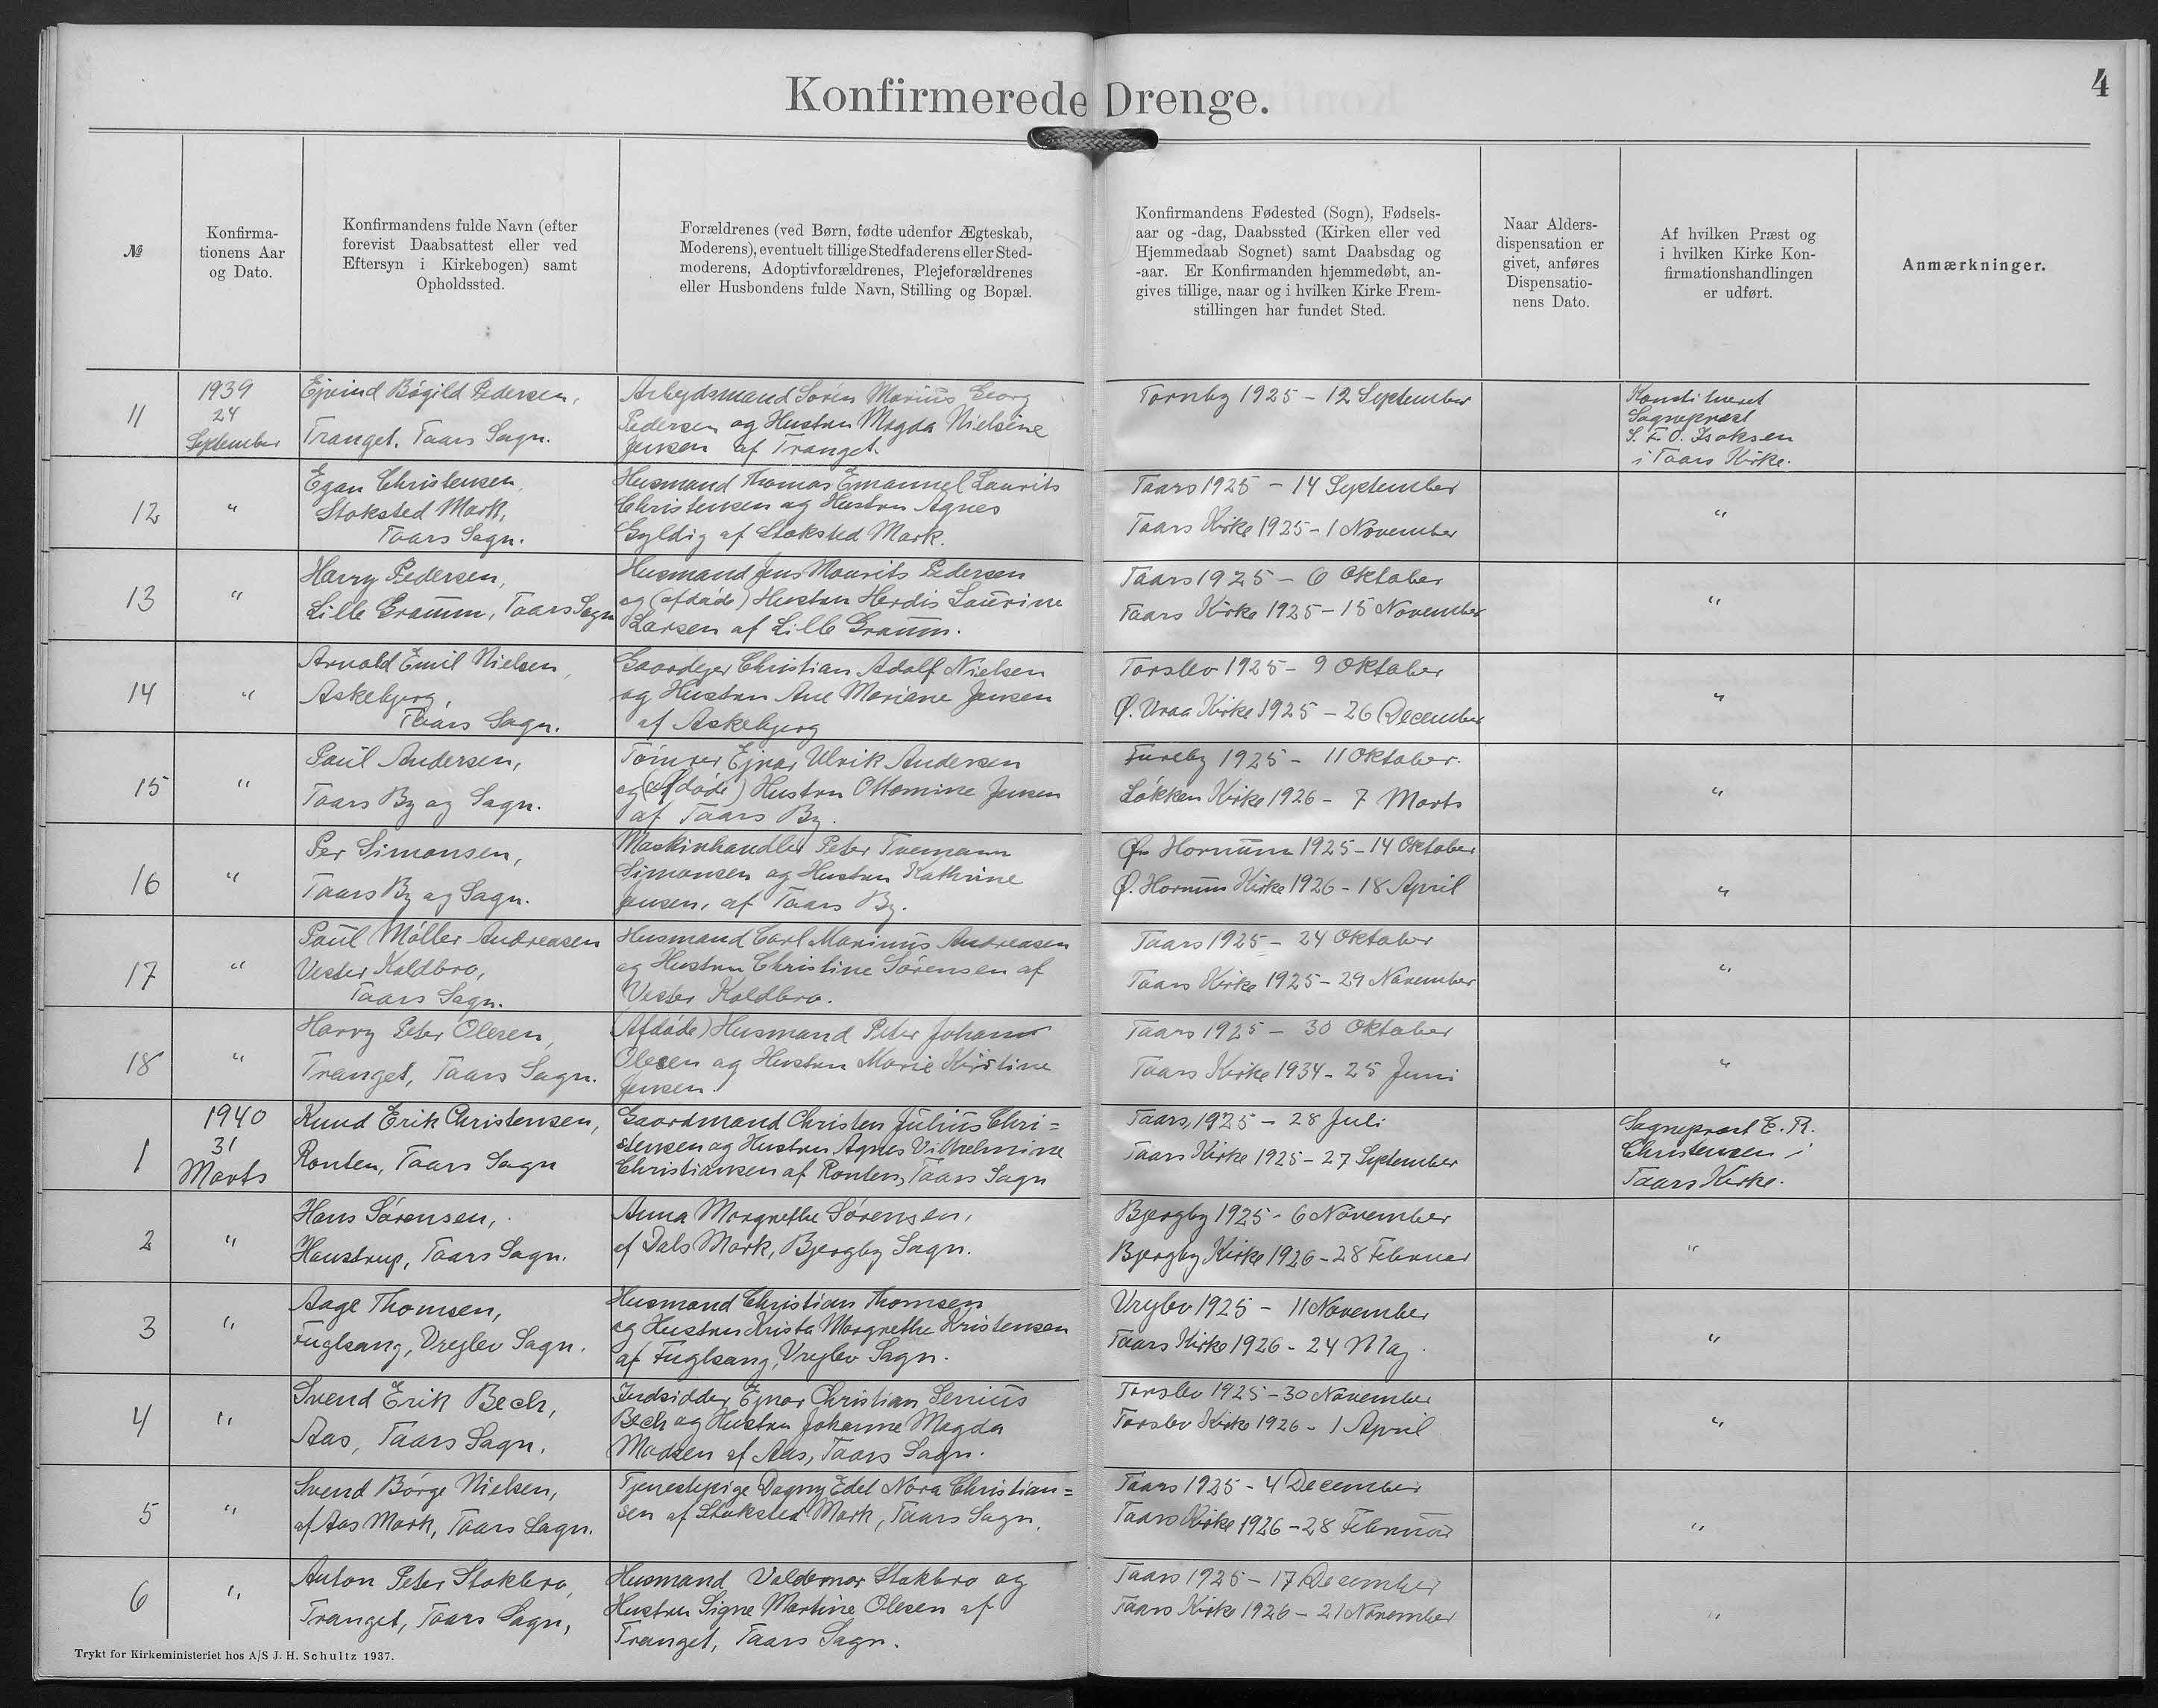 Konfirmerede Drenge.
4
№
Konfirma-
tionens Aar
og Dato.
Konfirmandens fulde Navn (efter
forevist Daabsattest eller ved
Eftersyn i Kirkebogen) samt
Opholdssted.
Forældrenes (ved Børn, fødte udenfor Ægteskab,
Moderens), eventuelt tillige Stedfaderens eller Sted-
moderens, Adoptivforældrenes, Plejeforældrenes
eller Husbondens fulde Navn, Stilling og Bopæl.
Konfirmandens Fødested (Sogn), Fødsels-
aar og -dag, Daabssted (Kirken eller ved
Hjemmedaab Sognet) samt Daabsdag og
-aar. Er Konfirmanden hjemmedøbt, an-
gives tillige, naar og i hvilken Kirke Frem-
stillingen har fundet Sted.
Naar Alders-
dispensation er
givet, anføres
Dispensatio-
nens Dato.
Af hvilken Præst og
i hvilken Kirke Kon-
firmationshandlingen
er udført.
Anmærkninger.
11
1939
24
September
Ejvind Bøgild Pedersen,
Tranget, Taars Sogn.
Arbejdsmand Søren Marius Georg
Pedersen og Hustru Magda Nielsine
Jensen af Tranget.
Tornby 1925 - 12 September
Konstitueret
Sognepræst
S. F. O. Isaksen
i Taars Kirke.
12
"
Egon Christensen,
Stoksted Mark,
Taars Sogn.
Husmand Thomas Emanuel Laurits
Christensen og Hustru Agnes
Gyldig af Stoksted Mark.
Taars 1925 - 14 September
Taars Kirke 1925 - 1 November
"
13
"
Harry Pedersen,
Lille Graum, Taars Sogn
Husmand Jens Mourits Pedersen
og (afdøde) Hustru Herdis Laurine
Larsen af Lille Graum.
Taars 1925 - 6 Oktober
Taars Kirke 1925 - 15 November
"
14
"
Arnold Emil Nielsen,
Askebjerg,
Taars Sogn.
Gaardejer Christian Adolf Nielsen
og Hustru Ane Mariane Jensen
af Askebjerg
Torslev 1925 - 9 Oktober
Ø. Vraa Kirke 1925 - 26 December
"
15
"
Poul Andersen,
Taars By og Sogn.
Tømrer Ejnar Ulrik Andersen
og (afdøde) Hustru Ottomine Jensen
af Taars By.
Furreby 1925 - 11 Oktober.
Løkken Kirke 1926 - 7 Marts
"
16
"
Per Simonsen,
Taars By og Sogn.
Maskinhandler Peter Tvemann
Simonsen og Hustru Kathrine
Jensen, af Taars By.
Ø. Hornum 1925 - 14 Oktober
Ø. Hornum Kirke 1926 - 18 April
"
17
"
Poul Møller Andreasen
Vester Koldbro,
Taars Sogn.
Husmand Carl Marinus Andreasen
og Hustru Christine Sørensen af
Vester Koldbro.
Taars 1925 - 24 Oktober
Taars Kirke 1925 - 29 November
"
18
"
Harry Peter Olesen,
Tranget, Taars Sogn.
(Afdøde) Husmand Peter Johan
Olesen og Hustru Marie Kirstine
Jensen.
Taars 1925 - 30 Oktober
Taars Kirke 1934 - 25 Juni
"
1
1940
31
Marts
Knud Erik Christensen,
Ronten, Taars Sogn
Gaardmand Christen Julius Chri=
stensen og Hustru Agnes Vilhelmine
Christiansen af Ronten, Taars Sogn
Taars, 1925 - 28 Juli
Taars Kirke 1925 - 27 September
Sognepræst E. R.
Christensen i
Taars Kirke.
2
"
Hans Sørensen,
Haustrup, Taars Sogn.
Anna Margrethe Sørensen,
af Dals Mark, Bjergby Sogn.
Bjergby 1925 - 6 November
Bjergby Kirke 1926 - 28 Februar
"
3
"
Aage Thomsen,
Fuglsang, Vrejlev Sogn.
Husmand Christian Thomsen
og Hustru Krista Margrethe Kristensen
af Fuglsang, Vrejlev Sogn.
Vrejlev 1925 - 11 November
Taars Kirke 1926 - 24 Maj.
"
4
"
Svend Erik Bech,
Aas, Taars Sogn.
Indsidder Ejnar Christian Senius
Bech og Hustru Johanne Magda
Madsen af Aas, Taars Sogn.
Torslev 1925 - 30 November
Torslev Kirke 1926 - 1 April
"
5
"
Svend Børge Nielsen,
af Aas Mark, Taars Sogn.
Tjenestepige Dagny Edel Nora Christian=
sen af Stoksted Mark, Taars Sogn.
Taars 1925 - 4 December
Taars Kirke 1926 - 28 Februar
"
6
"
Anton Peter Stokbro,
Tranget, Taars Sogn,
Husmand Valdemar Stokbro og
Hustru Signe Martine Olesen af
Tranget, Taars Sogn.
Taars 1925 - 17 December
Taars Kirke 1926 - 21 November
"
Trykt for Kirkeministeriet hos A/S J. H. Schultz 1937.